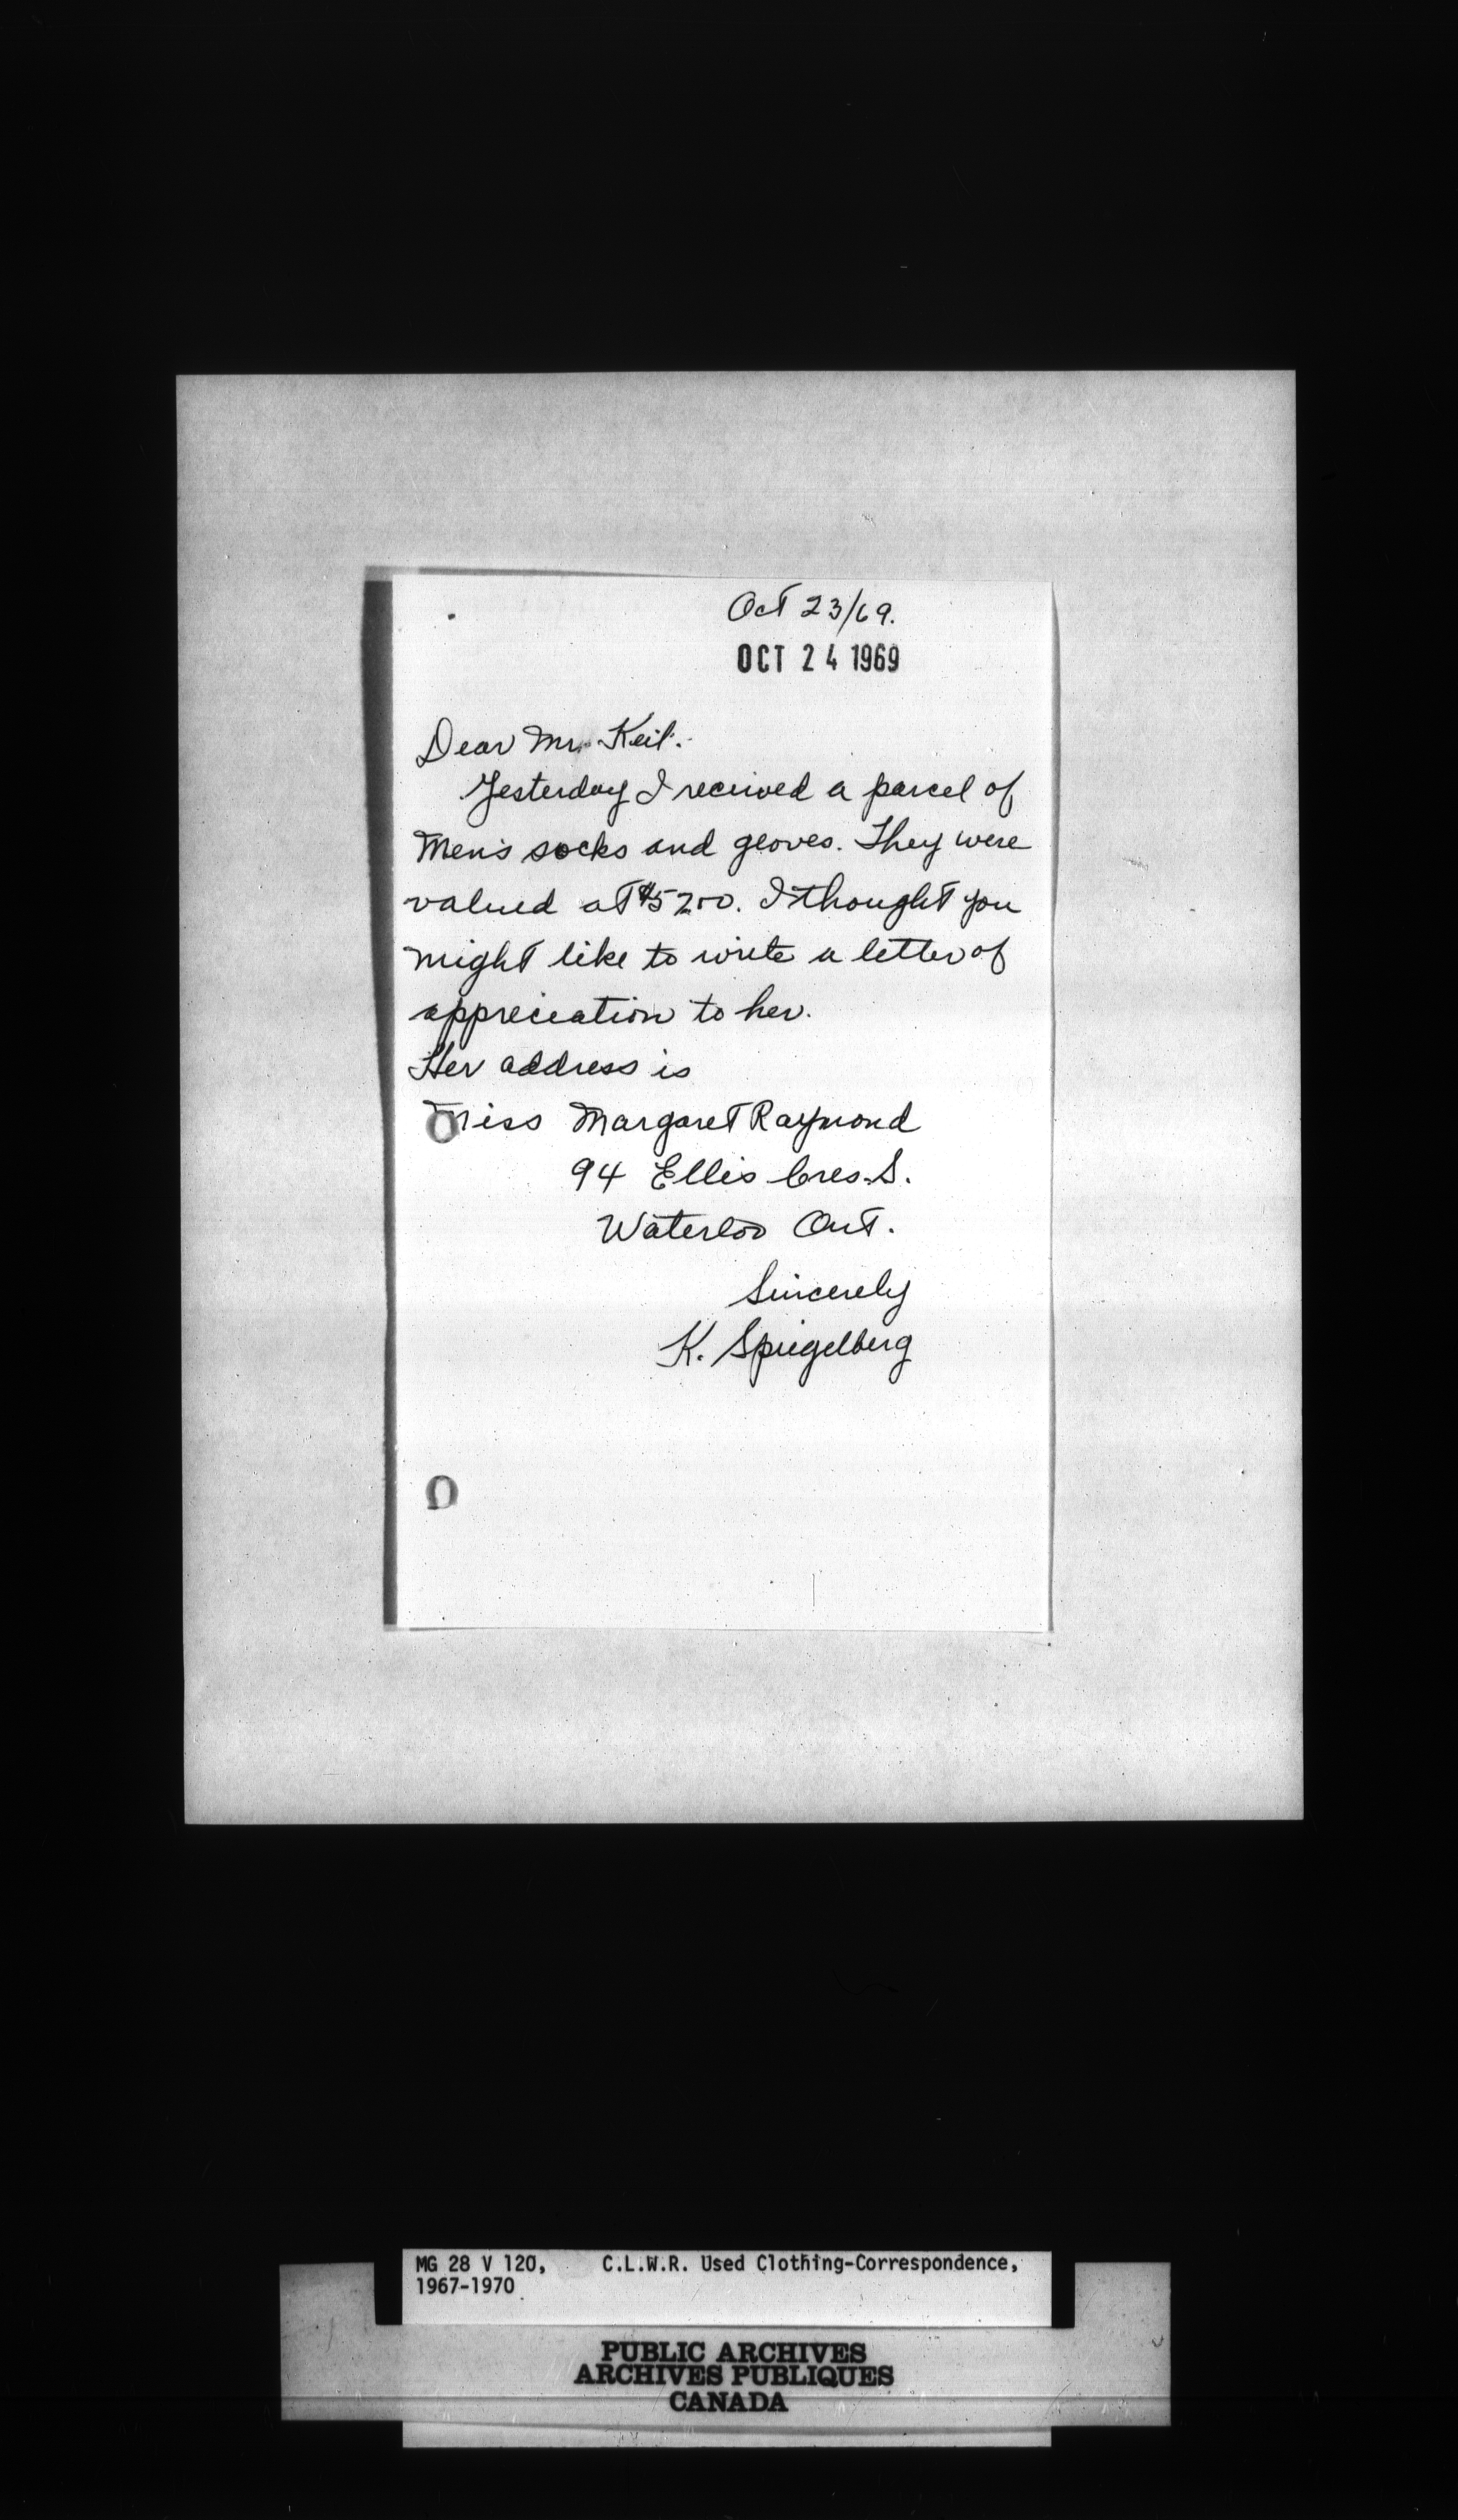 Oct 23/69.
OCT 24 1969
Dear Mr. Keil.
Yesterday I received a parcel of
Men's socks and gloves. They were
valued at $52.00. I thought you
might like to write a letter of
appreciation to her.
Her address is
Miss Margaret Raymond
94 Ellis Cres. S.
Waterloo Ont.
Sincerely
K. Spiegelberg
MG 28 V 120, C.L.W.R. Used Clothing-Correspondence,
1967-1970
PUBLIC ARCHIVES
ARCHIVES PUBLIQUES
CANADA